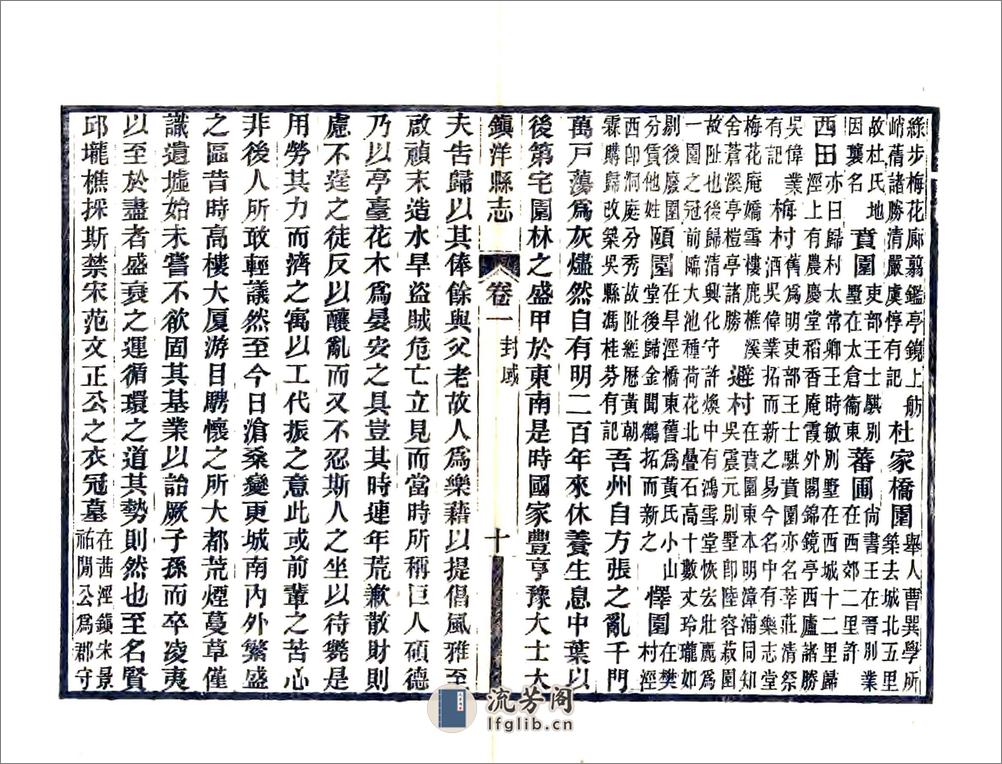 綠步梅花廊翦鑑亭鏡上舫
峭蒨諸勝清嚴虞惇有記
杜家橋園
舉人曹巽學所
築去城北五里
故杜氏地
因襄名
賁園
吏部王士騏別
墅在太倉衞東
蕃圃
尚書王在晉別業
在西郊二里許
西田
亦曰歸村太常卿王時敏別墅在西城十二里歸
涇上有農慶堂稻香庵霞外閣錦鏡亭西廬諸勝
吳偉業
有記
梅村
舊爲明吏部王士騏賁園亦名莘莊清祭
酒吳偉業拓而新之易今名中有樂志堂
梅花庵嬌雪樓鹿樵溪
舍蒼溪亭榿亭諸勝
避村
在賁園東本明漳浦同知
吳震元別墅卽陸容菽園
故阯也後歸清興化守許煥中有鴻雪堂恢宏壯麗爲
一園之冠前臨大池種荷花北疊石高十數丈玲瓏如
剔後廢圃
分賃他姓
頤園
在旱涇橋東舊爲黃氏小山
堂後歸金聞鶴拓而新之
懌園
在樊
村涇
西卽洞庭分秀故阯經歷黃朝
霖購歸改築吳縣馮桂芬有記
吾州自方張之亂千門
萬戸蕩爲灰燼然自有明二百年來休養生息中葉以
後第宅園林之盛甲於東南是時國家豐亨豫大士大
鎮洋縣志 卷一 封域 十
夫告歸以其俸餘與父老故人爲樂藉以提倡風雅至
啟禎末造水旱盜賊危亡立見而當時所稱巨人碩德
乃以亭臺花木爲晏安之具豈其時連年荒歉散財則
慮不逞之徒反以釀亂而又不忍斯人之坐以待斃是
用勞其力而濟之寓以工代振之意此或前輩之苦心
非後人所敢輕議然至今日滄桑變更城南内外繁盛
之區昔時高樓大厦游目騁懷之所大都荒煙蔓草僅
識遺墟始未嘗不欲固其基業以詒厥子孫而卒凌夷
以至於盡者盛衰之運循環之道其勢則然也至名賢
邱壠樵採斯禁宋范文正公之衣冠墓
在茜涇鎮宋景
祐間公爲郡守
流芳阁
lfglib.cn